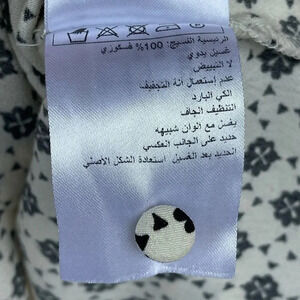 الرئيسية الفسيح: 100% فسكوزي
غسيل يدوي
لا التبييض
عدم إستعمال آنة التجفيف
الكي البارد
التنظيف الجاف
يغسل مع الوان شبيهه
حديد على الجانب العكسي
الحديد بعد الغسيل استعادة الشكل الاصلي